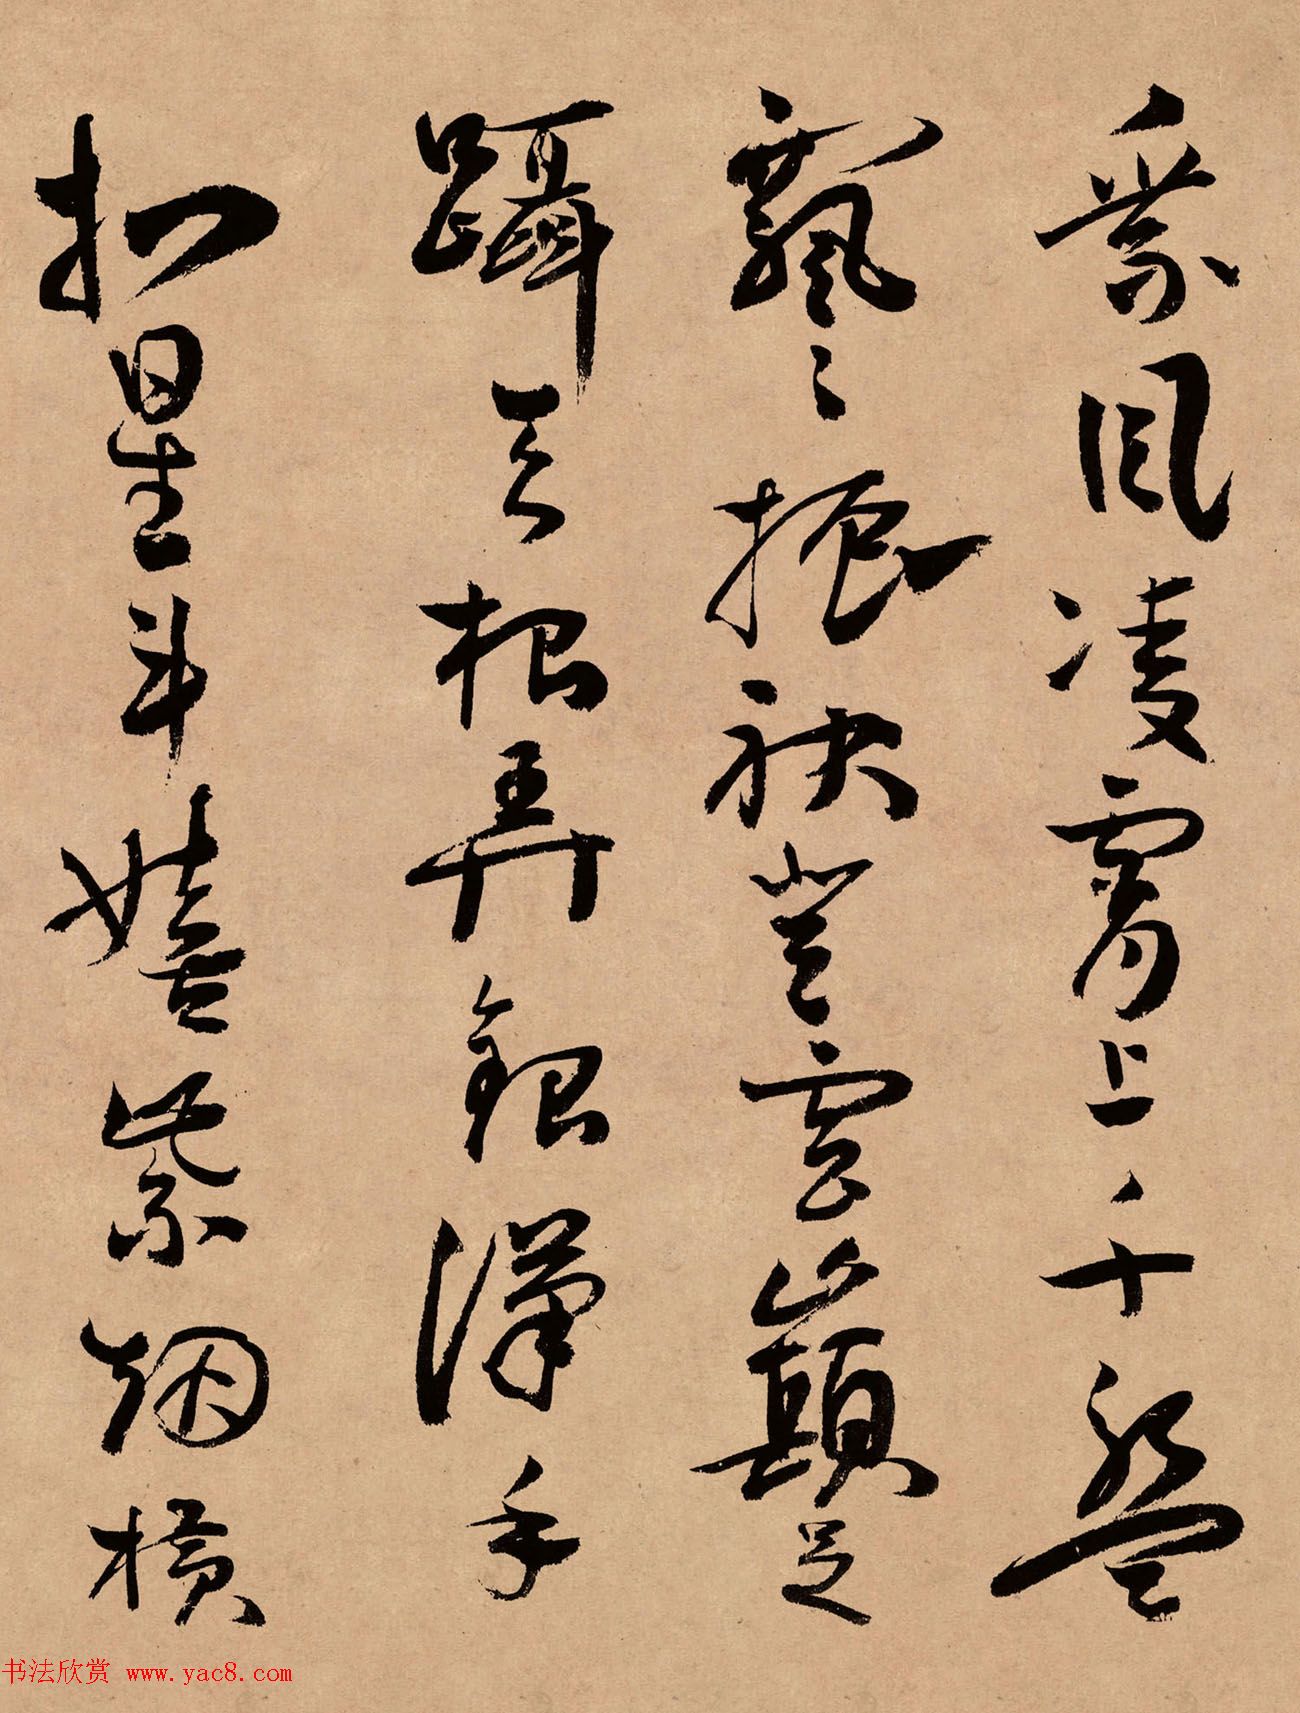 乘風凌霄上千盤
飄〻振袂登雲巔足
躡天根弄銀漢手
扣星斗嬉紫烟橫
书法欣赏 www.yac8.com